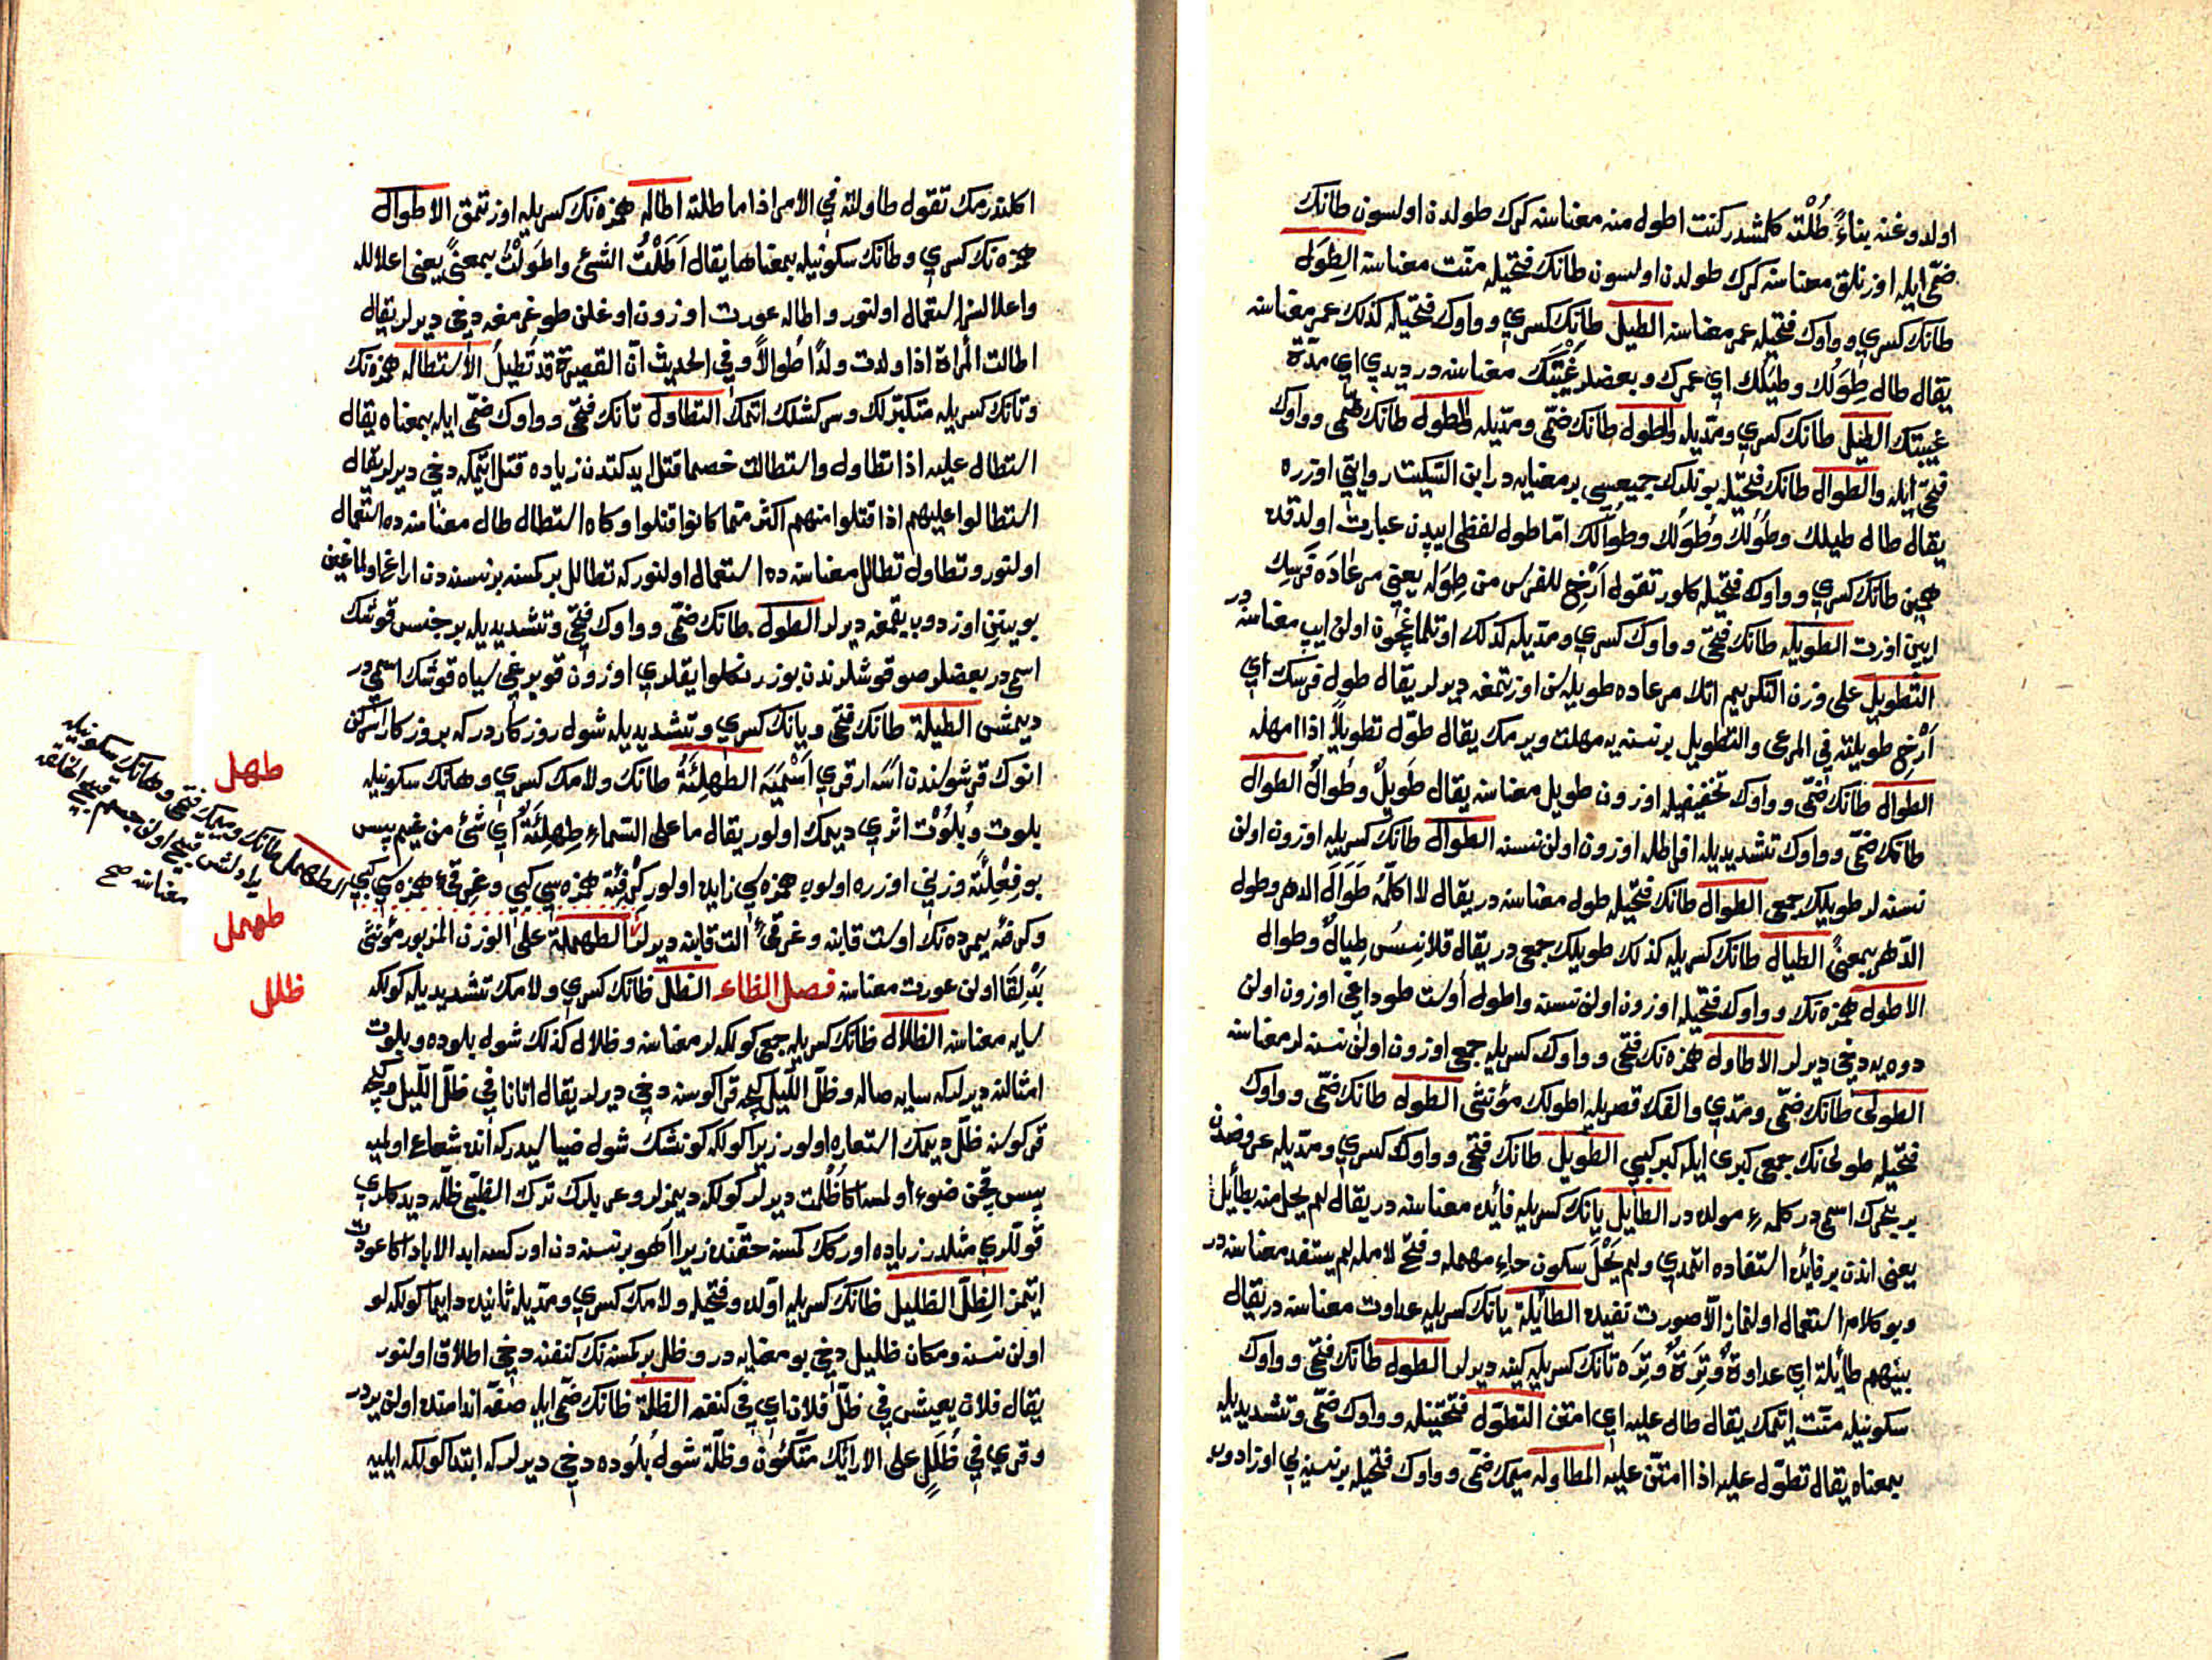 اولدوغنه بناءً طُلْته كلمشدر كنت اطول منه معناسنه كرك طولدن اولسون طانك
ضمّى ايله اوزنلق معناسنه كرك طولدن اولسون طانك فتحيله منّت معناسنه الطِوَل
طانك كسري وواوك فتحيله عمر معناسنه الطيل طانِك كسري وواوك فتحيله كذلك عمر معناسنه
يقال طال طِوَلُك وطِيَلُك اي عمرك وبعضلر غَيْبَتُك معناسنه در ديدي اي مدّة
غيبتك الطيل طانك كسري ومدّيله والطول طانك ضمّى ومدّيله والطول طانك ضمّى وواوك
فتحى ايله والطوال طانك فتحيله بونلرك جميعسى بر معنايه در ابن السّكيت روايتى اوزره
يقال طال طيلك وطُولُك وطُوَلُك وطُوالُك امّا طول لفظى ايپدن عبارت اولدقده
همين طانك كسري وواوك فتحيله كلور تقول أَرْخِ للفرس من طِوَله يعنى مرعاده فَرَسِك
ايپن اوزت الطويله طانك فتحى وواوك كسري ومدّيله كذلك اوتلماغچون اولن ايپ معناسنه در
التطويل على وزن التكريم اتلا مرعاده طويله سن اوزتمغه ديرلر يقال طول فرسك اي
أَرْخِ طويلته في المرعى والتطويل بر نسنه يه مهلت ويرمك يقال طوّل تطويلاً اذا امهله
الطوال طانك ضمّى وواوك تخفيفيله اوزون طويل معناسنه يقال طَويلٌ وطُوالٌ الطوال
طانك ضمّى وواوك تشديديله افراطله اوزون اولن نسنه الطوال طانك كسريله اوزون اولن
نسنه لر طويلك جمعى الطوال طانك فتحيله طول معناسنه در يقال لا اكلّمه طَوالَ الدهر وطول
الدّهر بمعنىً الطيال طانك كسريله كذلك طويلك جمعى در يقال قلانِسُ طِيالٌ وطوال
الاطول همزه نك وواوك فتحيله اوزون اولن نسنه واطول أوست طوداغى اوزون اولن
دوه يه دخى ديرلر الاطاول همزه نك فتحى وواوك كسريله جمعى اوزون اولن نسنه لر معناسنه
الطولى طانك ضمّى ومدّي والفك قصريله اطولك مؤنثى الطول طانك ضمّى وواوك
فتحيله طولى نك جمعى كبرى ايله كبر كبي الطويل طانك فتحى وواوك كسري ومدّيله عروضدن
بر بحرك اسمى در كلمۀ مولده در الطايل يانك كسريله فائده معناسنه در يقال لم يحل منه بطائل
يعنى اندن بر فائده استفاده اتمدي ولم يَحْلَ سكون حاء مهمله وفتح لامله لم يستفد معناسنه در
وبو كلام استعمال اولنماز الّا صورت نفيده الطائلة يانك كسريله عداوت معناسنه در يقال
بينهم طائلة اي عداوةٌ وتِرَةٌ وتِرَه تانك كسريله كينه ديرلر الطول طانك فتحى وواوك
سكونيله منّت ايتمك يقال طال عليه اي امتن التطوّل فتحتينله وواوك ضمّى وتشديديله
بمعناه يقال تطوّل عليه اذا امتنّ عليه المطاوله ميمك ضمّى وواوك فتحيله بر نسنه يي اوزادوب
اكلندرمك تقول طاولته في الامر اذا ماطلته اطاله همزه نك كسريله اوزتمق الاطوال
همزه نك كسري وطانك سكونيله بمعناها يقال أَطَلْتُ الشئ واطْوَلْتُ بمعنىً يعنى اعلالله
واعلالسز استعمال اولنور واطاله عورت اوزون اوغلن طوغرمغه دخى ديرلر يقال
اطالت المرأة اذا ولدت ولدًا طُوالاً وفي الحديث انّ القصيرة قد تُطيلُ الاستطاله همزه نك
وتانك كسريله متكبّرلك وسركشلك اتمك التطاول تانك فتحى وواوك ضمّى ايله بمعناه يقال
استطال عليه اذا تطاول واستطالت خصما قتل ايدكندن زياده قتل ايتمكه دخى ديرلر يقال
استطالوا عليهم اذا قتلوا منهم اكثر ممّا كانوا قتلوا وكاه استطال طال معناسنده استعمال
اولنور وتطاول تطالل معناسنده استعمال اولنور كه تطالل بر كمسنه بر نسنه دن اراغ اولماغين
بوينن اوزدوب بقمغه ديرلر الطول طانك ضمّى وواوك فتحى وتشديديله بر جنس قوشك
اسمى در بعضلر صو قوشلرندن بوز رنكلو ايقلري اوزون قويروغى سياه قوشك اسمى در
ديمشى الطيلة طانك فتحى ويانك كسري وتشديديله شول روزكار در كه بو روزكار اسركن
انوك قرشوسندن اسه ار قري اَسْمِيَه الطهلئة طانك ولامك كسري وهانك سكونيله
بلوت وبُلُوْت اثري ديمك اولور يقال ما على السّماء طِهلِئَةٌ اي شئ من غيم پس
بو فِعْلِئَة وزنى اوزره اولوب همزه سي زايده اولور كِرْفِئَة همزه سي كبي وغِرقِئ همزه سي كبي
وكرفئه يمرده نك اوست قابنه وغرقئ الت قابنه ديرلر الطهملة على الوزن المزبور مؤنثى
بَدْلِقَا اولن عورت معناسنه فصل الظاء الظلّ ظانك كسري ولامك تشديديله كولكه
سايه معناسنه الظلال ظانك كسريله جمعى كولكه لر معناسنه وظلال كذلك شول بلوده وبلوت
امثالنه ديرلر كه سايه صاله وظلّ اللّيل كيجه قراكوسنه دخى ديرلر يقال اتانا في ظلّ اللّيل وكيجه
قراكوسنه ظلّ ديمك استعاره اولور زيرا كولكه كونشك شول ضياسيدر كه انده شعاع اولميه
پس قچن ضوء اولمسه اكا ظُلمت ديرلر كولكه ديمزلر وعربلرك ترك الظبى ظلّه ديدكلري
قوللري مثلدر زياده اوركك كمسنه حقنده زيرا آهو بر نسنه دن اوركسه ابد الاباد اكا عودت
ايتمز الظِلّ الظليل ظانك كسريله اوّلده وفتحيله ولامك كسري ومدّيله ثانيده دايما كولكه لو
اولن نسنه ومكان ظليل دخى بو معنايه در وظل بر كمسنه نك كنفنه دخى اطلاق اولنور
يقال فلان يعيش في ظلّ فلان اي في كنفه الظلة ظانك ضمّى ايله صفّه اندامنده اولن يردر
وقري في ظُلَلٍ على الارائك متّكئون وظلّة شول بلوده دخى ديرلر كه ابتدا كولكه ايليه
طهل
الطهمل طانك وميمك فتحى وهانك سكونيله
يرادلشى قبيح اولن جسيم قبيح الخلقه
معناسنه صح
طهمل
ظلل